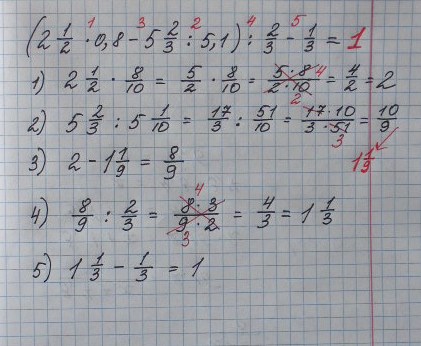 (2 1/2 · 0,8 − 5 2/3 : 5,1) : 2/3 − 1/3 = 1
1 3 2 4 5
1) 2 1/2 · 8/10 = 5/2 · 8/10 = 5·8/2·10 = 4/2 = 2
4 2
2) 5 2/3 : 5 1/10 = 17/3 : 51/10 = 17·10/3·51 = 10/9
3 1 1/9
3) 2 − 1 1/9 = 8/9
4) 8/9 : 2/3 = 8·3/9·2 = 4/3 = 1 1/3
4 3
5) 1 1/3 − 1/3 = 1